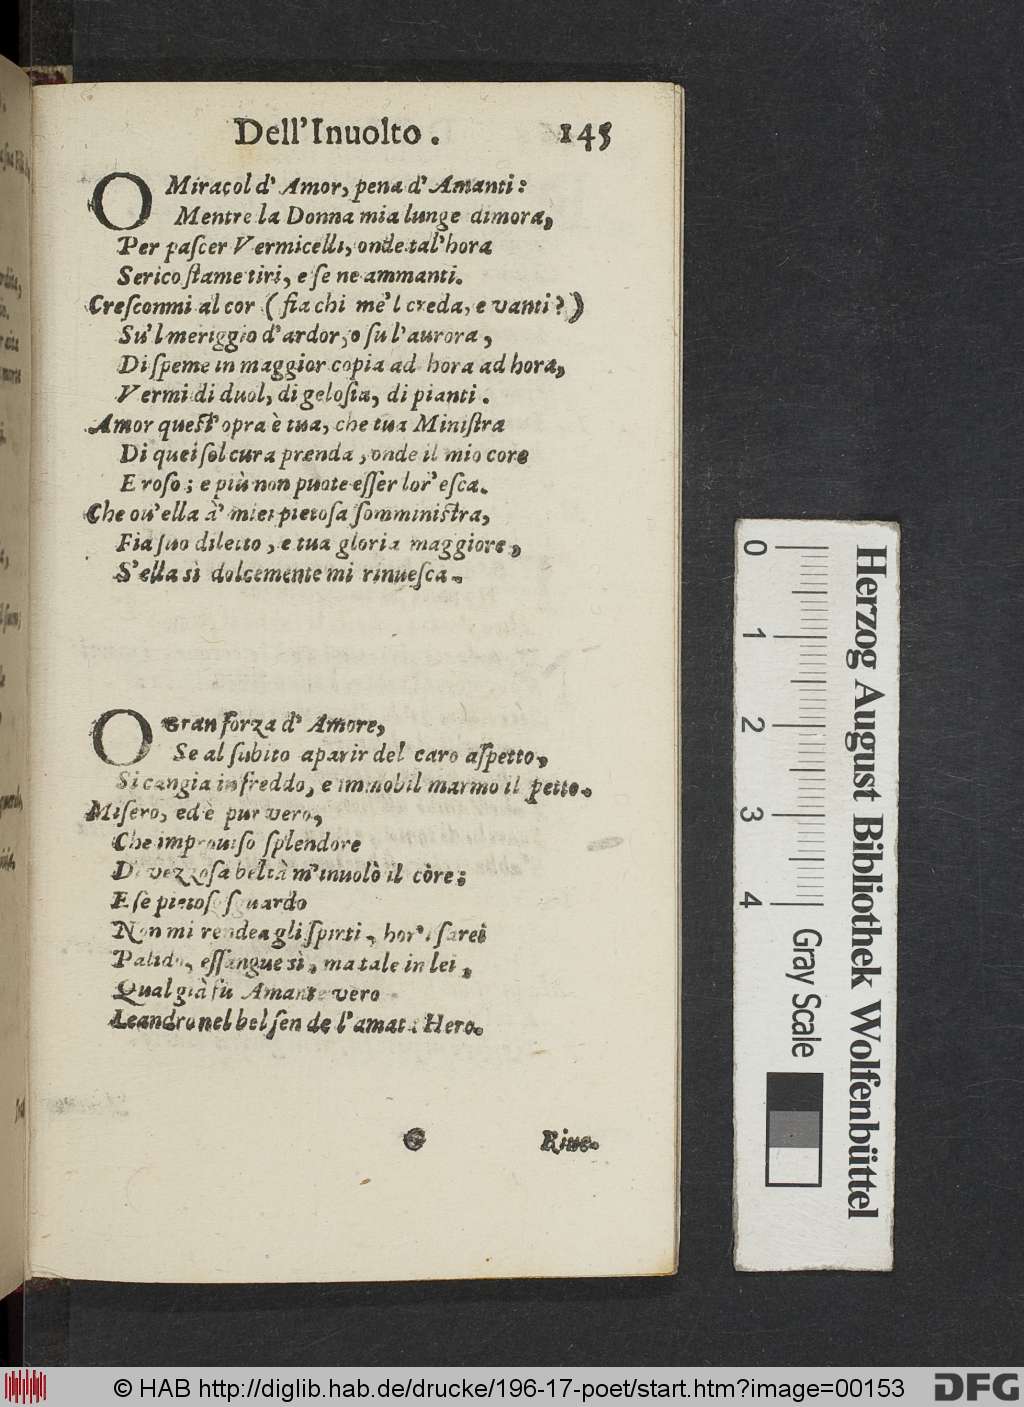 Dell'Inuolto. 145
O Miracol d' Amor, pena d' Amanti:
Mentre la Donna mia lunge dimora,
Per paſcer Vermicelli, onde tal'hora
Serico ſtame tiri, e ſe ne ammanti.
Creſconmi al cor (fia chi me'l creda, e vanti?)
Su'l meriggio d'ardor, o ſu l'aurora,
Di ſpeme in maggior copia ad hora ad hora,
Vermi di duol, di geloſia, di pianti.
Amor queſt'opra è tua, che tua Miniſtra
Di quei ſol cura prenda, onde il mio core
E roſo; e più non puote eſſer lor'eſca.
Che ou'ella à' miei pietoſa ſomminiſtra,
Fia ſuo diletto, e tua gloria maggiore,
S'ella sì dolcemente mi rinueſca.
O Gran forza d' Amore,
Se al ſubito aparir del caro aſpetto,
Si cangia in freddo, e immobil marmo il petto.
Miſero, ed è pur vero,
Che improuiſo ſplendore
Di vezzoſa beltà m'inuolò il còre;
E ſe pietoſo ſguardo
Non mi rendea gli ſpirti, hor' ſarei
Palido, eſſangue sì, ma tale in lei,
Qual già fù Amante vero
Leandro nel bel ſen de l'amata Hero.
G Riue-
0 1 2 3 4
Gray Scale
Herzog August Bibliothek Wolfenbüttel
© HAB http://diglib.hab.de/drucke/196-17-poet/start.htm?image=00153
DFG